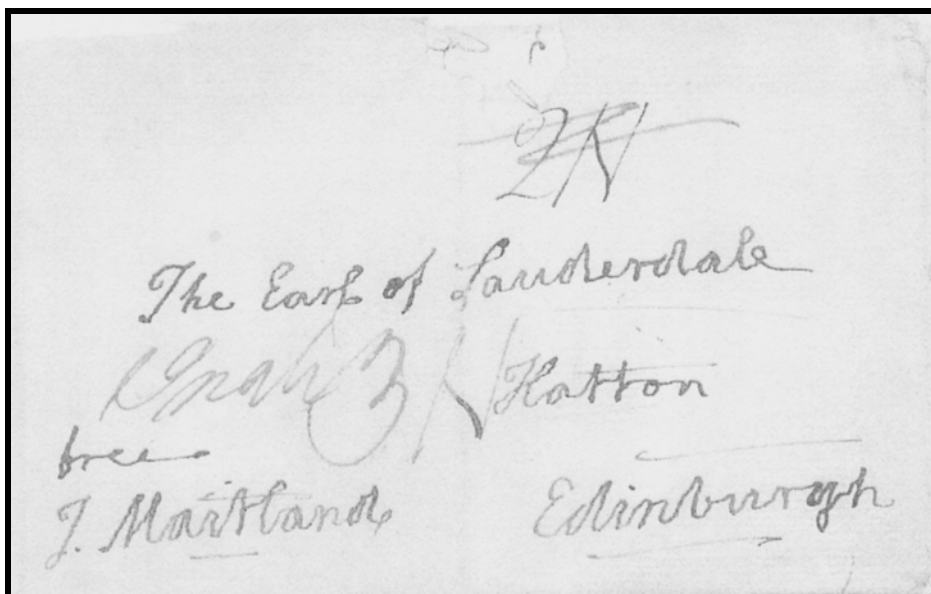 The Earl of Lauderdale
Hatton
free
J. Maitland
Edinburgh